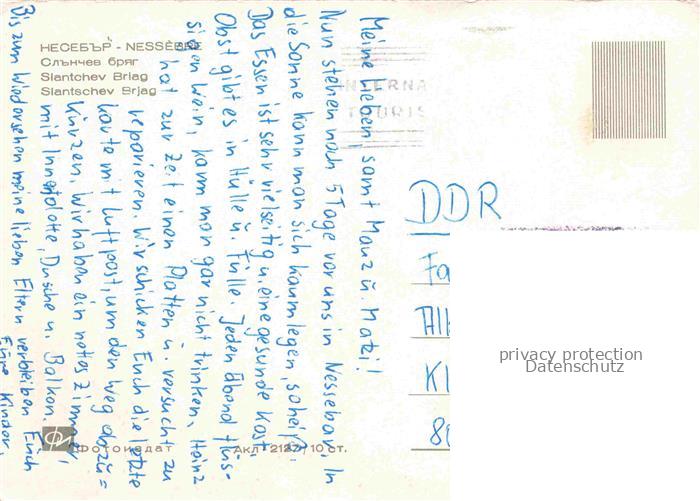 НЕСЕБЪР - NESSÈBRE
Слънчев бряг
Slantchev Briag
Slantschev Brjag
INTERNA
TOURIS
Meine Lieben, samt Manz u. Matzi!
Nun stehen noch 5 Tage vor uns in Nessebar. In
die Sonne kann man sich kaum legen, so heiß.
Das Essen ist sehr vielseitig u. eine gesunde Kost.
Obst gibt es in Hülle u. Fülle. Jeden Abend flüs-
sigen Wein, kann man gar nicht trinken, Heinz
hat zur Zeit einen Platten u. versucht zu
reparieren. Wir schicken Euch die letzte
Karte mit Luftpost, um den Weg abzu=
kürzen. Wir haben ein nettes Zimmer,
mit Innentoilette, Dusche u. Balkon.
Bis zum Wiedersehen meine lieben Eltern verbleiben Euch
Eure Kinder.
DDR
Fa
All
Kl
80
privacy protection
Datenschutz
Фотоиздат
Акл 2127/10 ст.